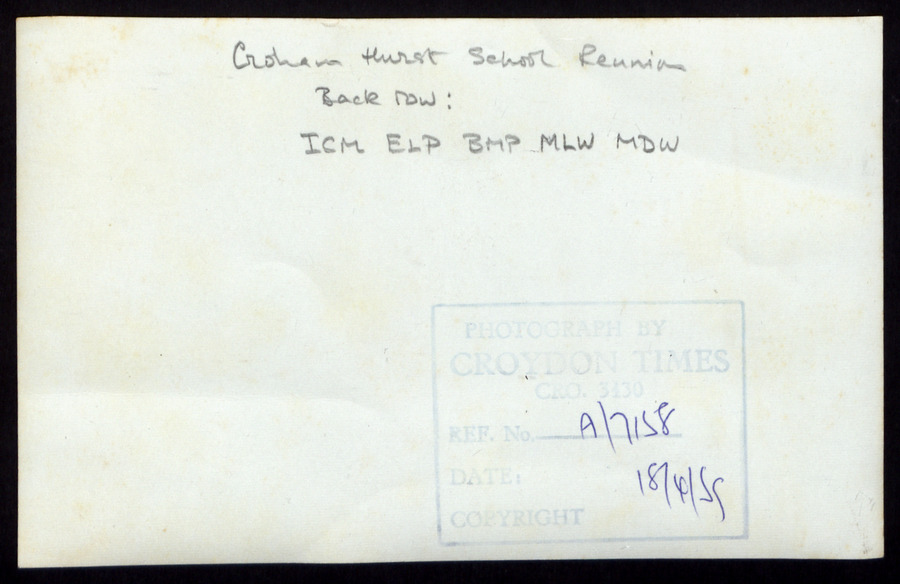 Croham Hurst School Reunion
Back row:
ICM ELP BMP MLW MDW
PHOTOGRAPH BY
CROYDON TIMES
CRO. 3430
REF. No. A/7158
DATE: 18/4/59
COPYRIGHT